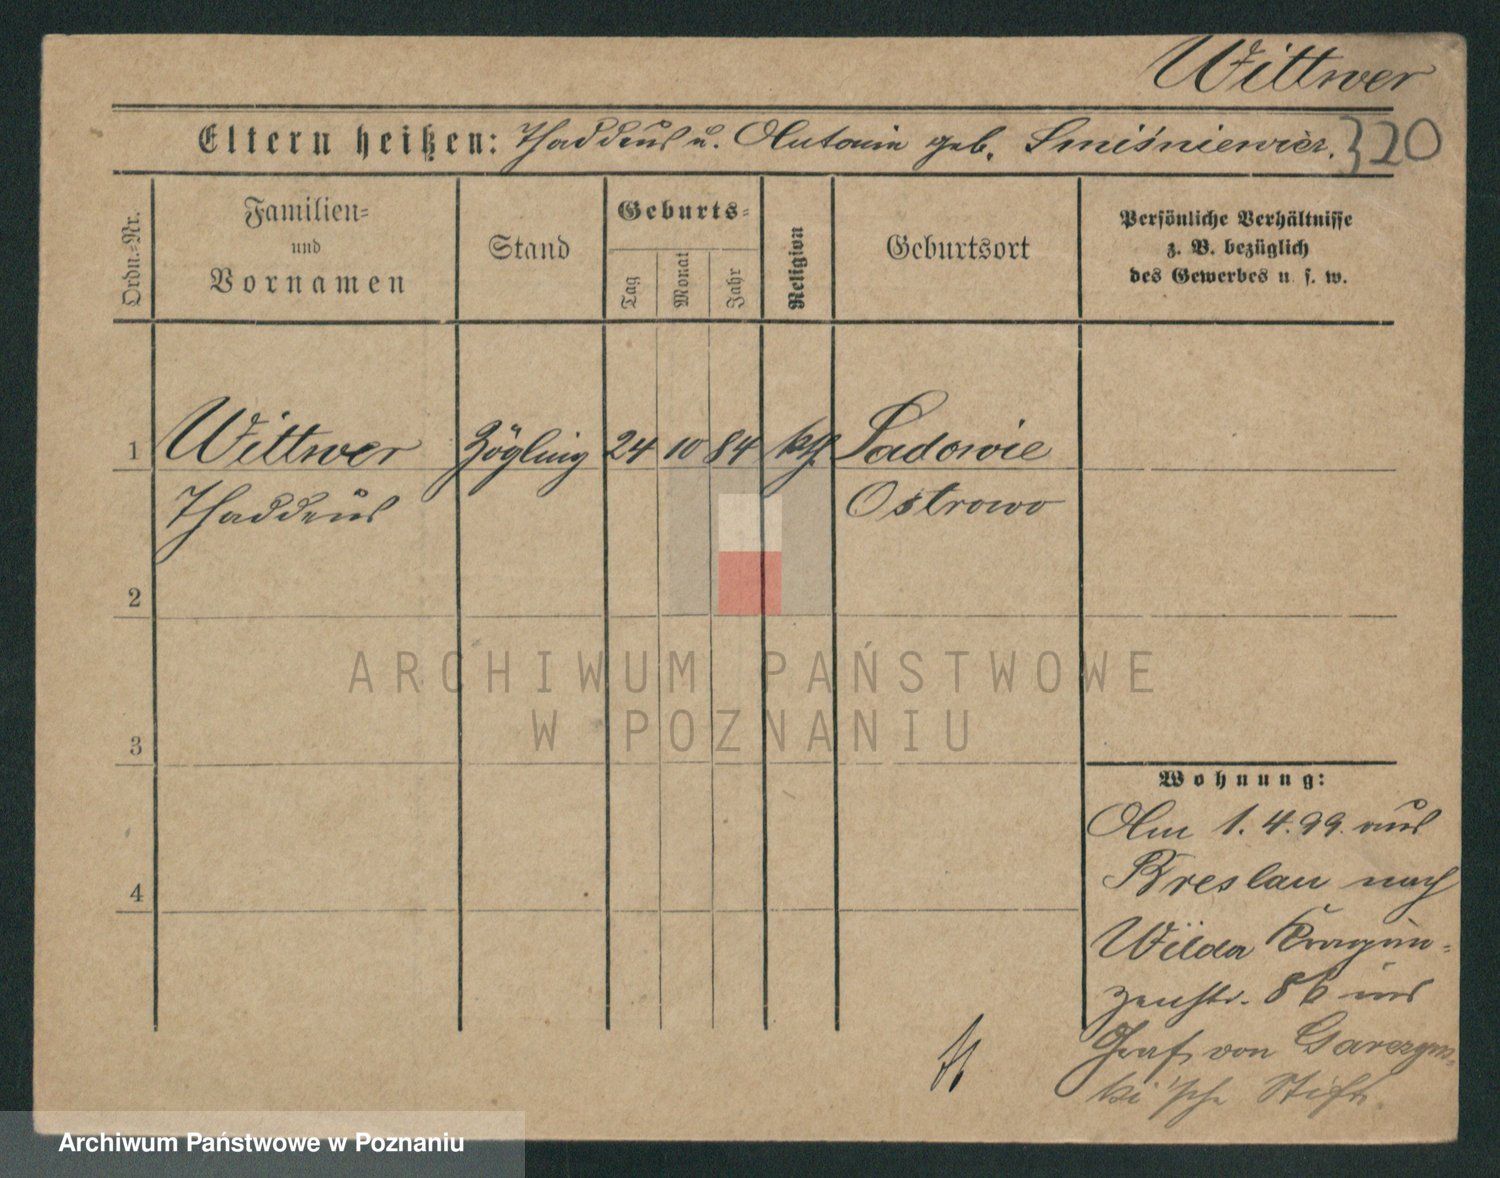 Wittwer
Eltern heißen: Thaddeus u. Antonie geb. Smiśniewicz.
320
Ordn.-Nr.
Familien-
und
Vornamen
Stand
Geburts-
Tag
Monat
Jahr
Religion
Geburtsort
Persönliche Verhältnisse
z. B. bezüglich
des Gewerbes u. s. w.
1 Wittwer Zögling 24 10 84 kth Sadowie
Thaddeus Ostrowo
2
ARCHIWUM PAŃSTWOWE
W POZNANIU
3
Wohnung:
Am 1.4.99. aus
4 Breslau nach
Wilda
zenstr. 8b ins
Graf von Garczyns-
ki'sche Stift.
Archiwum Państwowe w Poznaniu